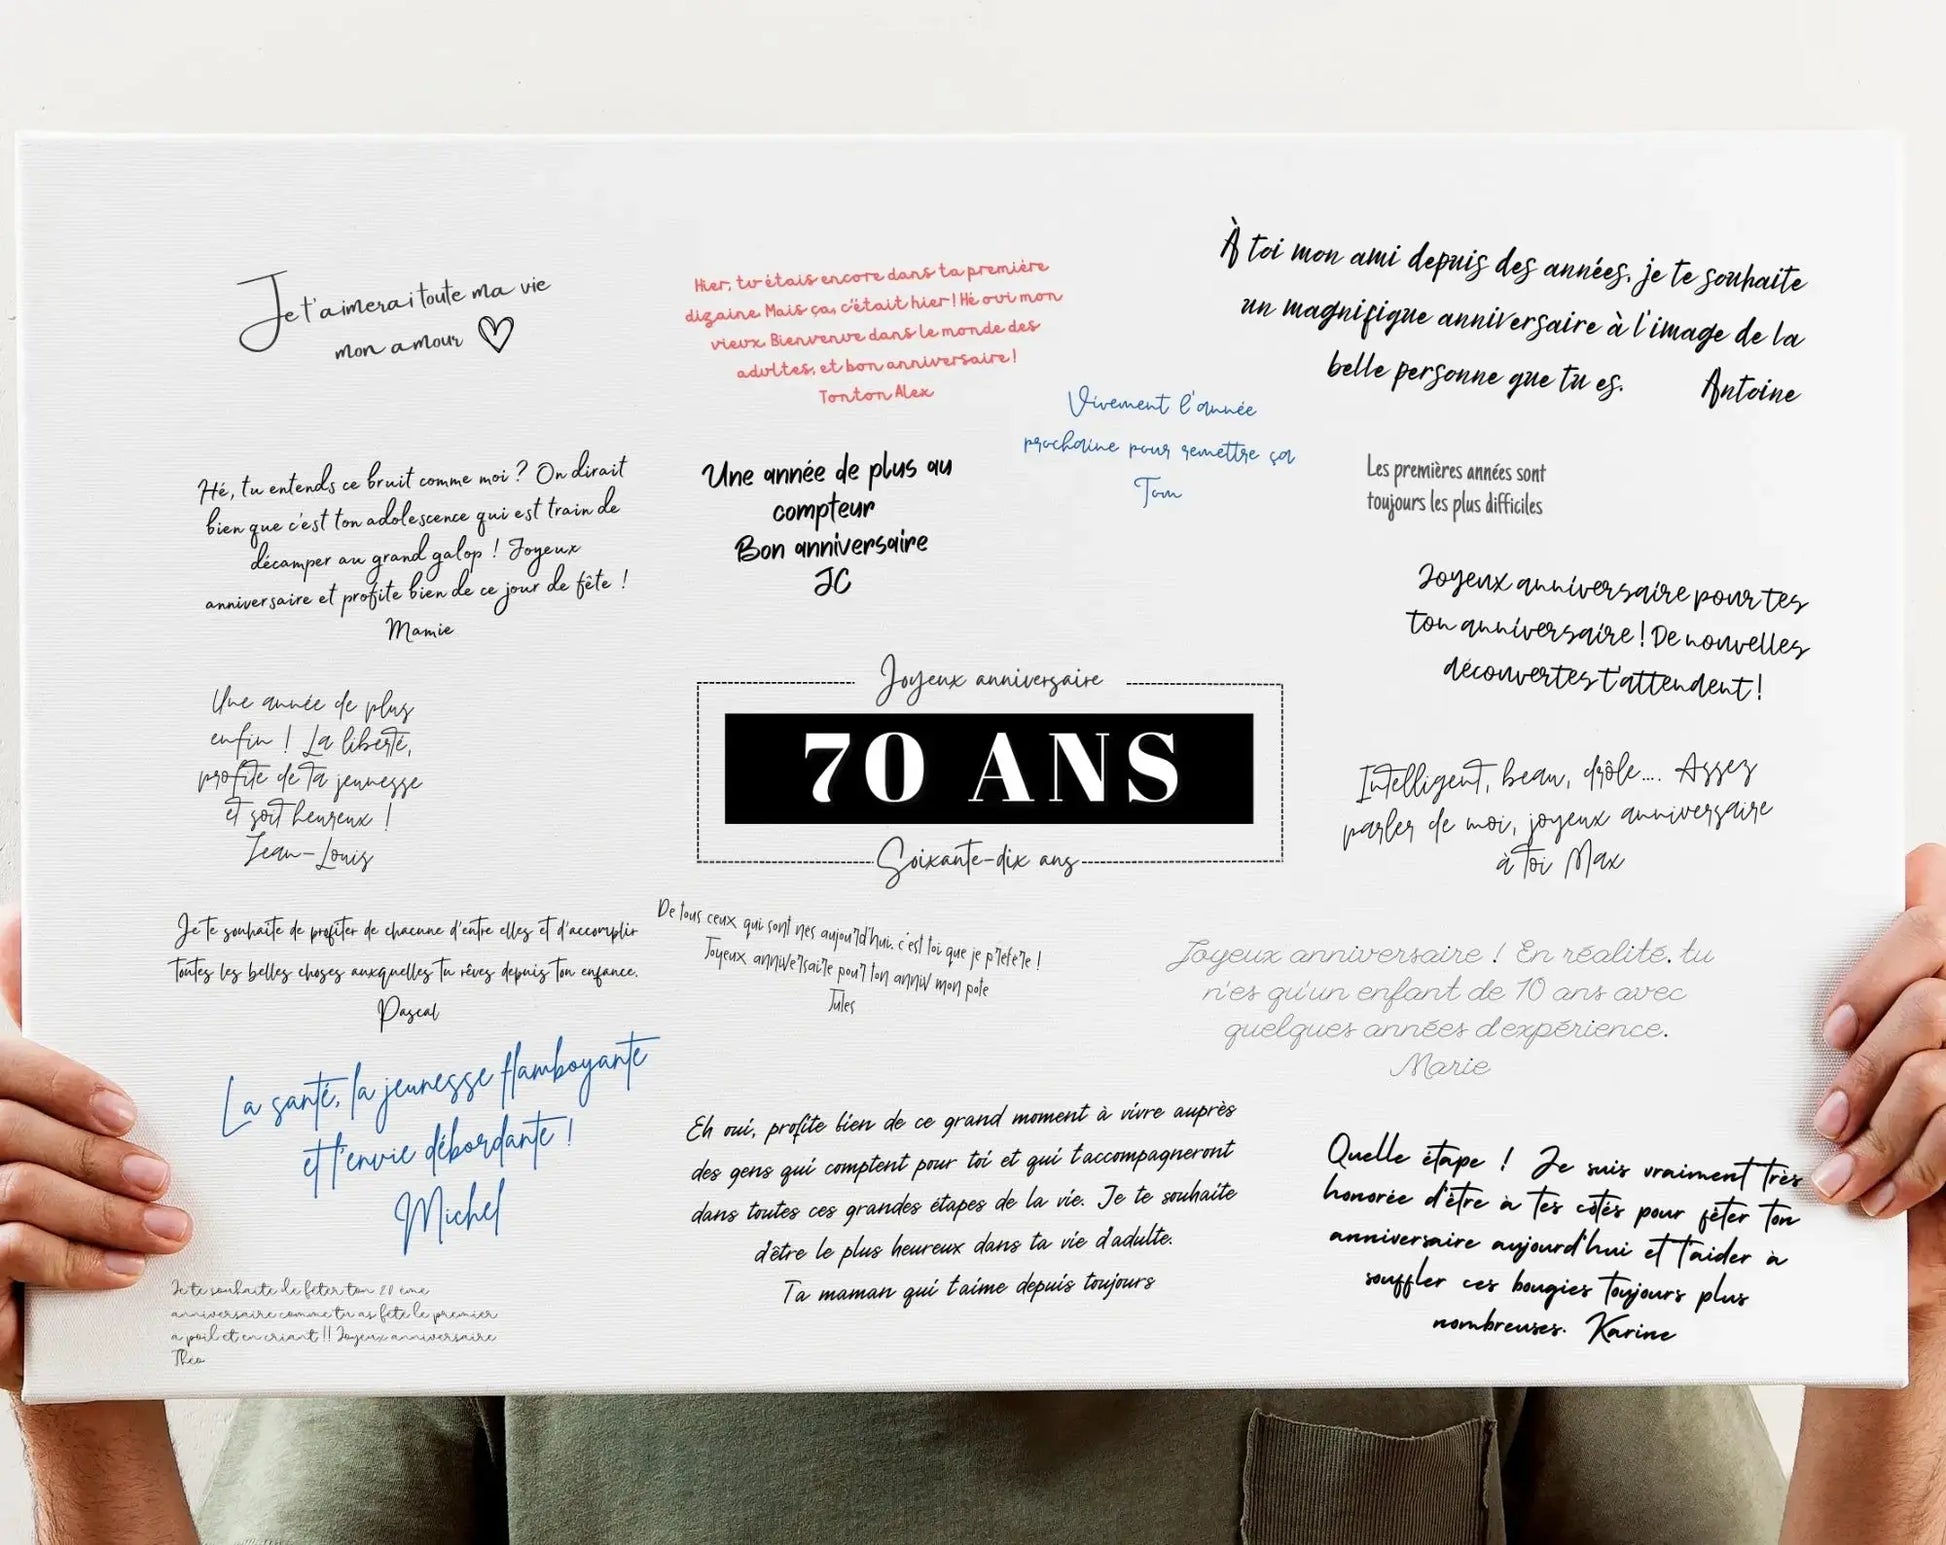 Je t'aimerai toute ma vie
mon amour
Hier, tu étais encore dans ta première
dizaine. Mais ça, c'était hier ! Hé oui mon
vieux. Bienvenue dans le monde des
adultes, et bon anniversaire !
Tonton Alex
À toi mon ami depuis des années, je te souhaite
un magnifique anniversaire à l'image de la
belle personne que tu es. Antoine
Vivement l'année
prochaine pour remettre ça
Tom
Hé, tu entends ce bruit comme moi ? On dirait
bien que c'est ton adolescence qui est train de
décamper au grand galop ! Joyeux
anniversaire et profite bien de ce jour de fête !
Mamie
Une année de plus au
compteur
Bon anniversaire
JC
Les premières années sont
toujours les plus difficiles
Joyeux anniversaire pour tes
ton anniversaire ! De nouvelles
découvertes t'attendent !
Une année de plus
enfin ! La liberté,
profite de ta jeunesse
et soit heureux !
Jean-Louis
Joyeux anniversaire
70 ANS
Soixante-dix ans
Intelligent, beau, drôle.... Assez
parler de moi, joyeux anniversaire
à toi Max
Je te souhaite de profiter de chacune d'entre elles et d'accomplir
toutes les belles choses auxquelles tu rêves depuis ton enfance.
Pascal
De tous ceux qui sont nés aujourd'hui. c'est toi que je préfère !
Joyeux anniversaire pour ton anniv mon pote
Jules
Joyeux anniversaire ! En réalité, tu
n'es qu'un enfant de 10 ans avec
quelques années d'expérience.
Marie
La santé, la jeunesse flamboyante
et l'envie débordante !
Michel
Eh oui, profite bien de ce grand moment à vivre auprès
des gens qui comptent pour toi et qui t'accompagneront
dans toutes ces grandes étapes de la vie. Je te souhaite
d'être le plus heureux dans ta vie d'adulte.
Ta maman qui t'aime depuis toujours
Quelle étape ! Je suis vraiment très
honorée d'être à tes côtés pour fêter ton
anniversaire aujourd'hui et t'aider à
souffler ces bougies toujours plus
nombreuses. Karine
Je te souhaite de fêter ton 20 ème
anniversaire comme tu as fêté le premier
a poil et en criant !! Joyeux anniversaire
Théo